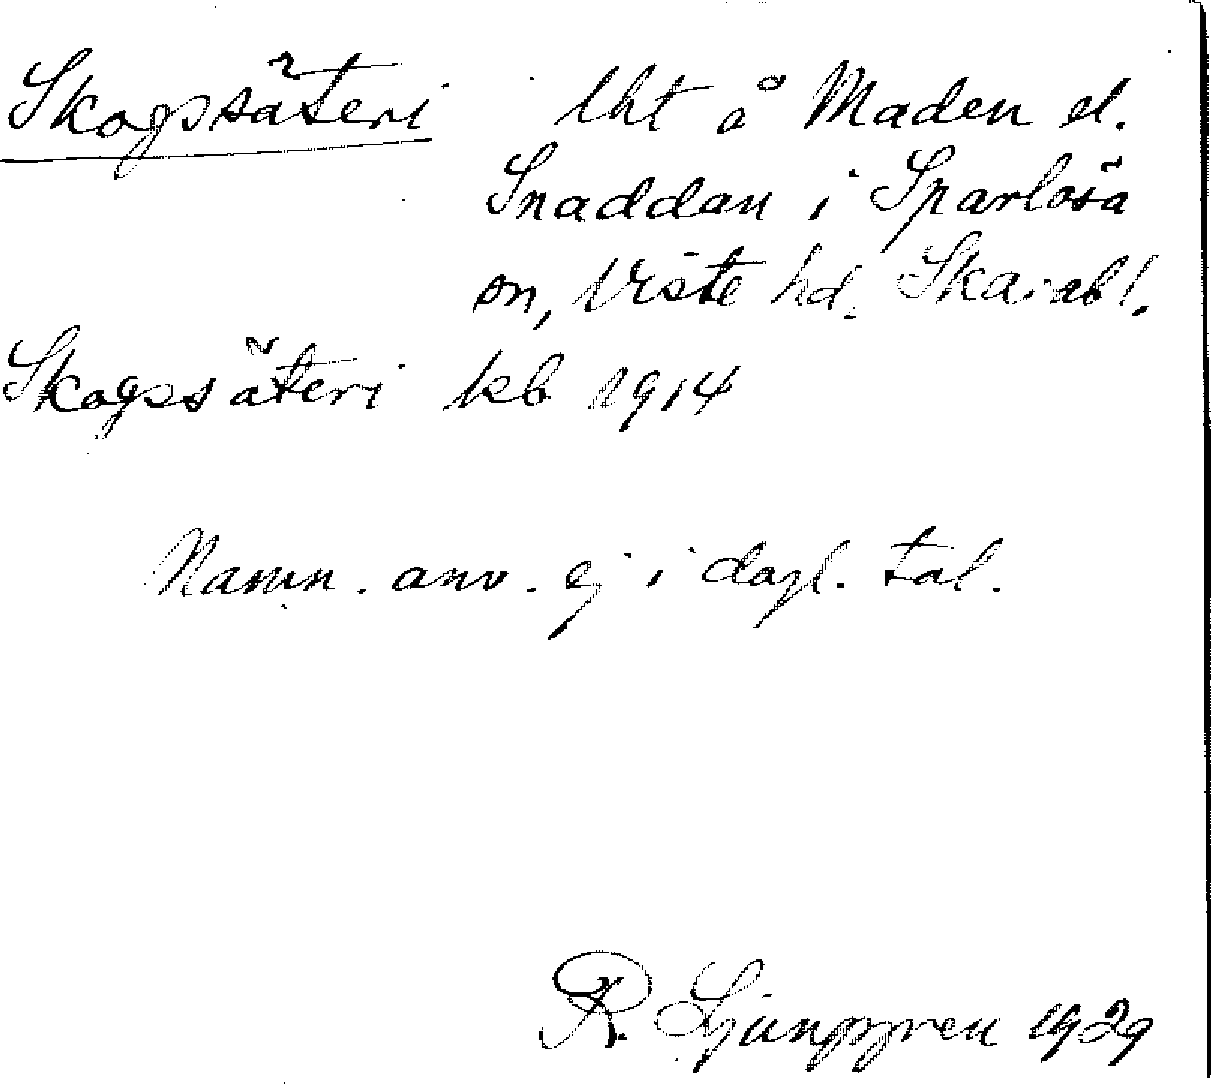 Skogssäteri lht å Maden el.
Snaddan i Sparlösa
sn, Viste hd. Skarabl.
Skogssäteri kb 1914
Namn. anv. ej i dagl. tal.
R. Ljunggren 1929